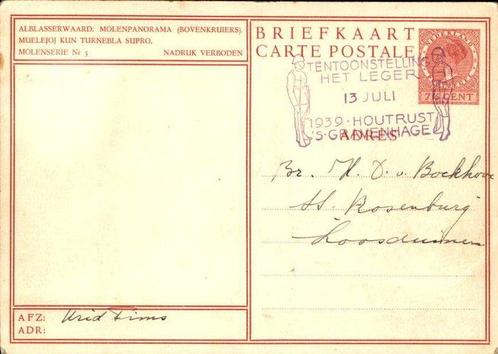 ALBLASSERWAARD. MOLENPANORAMA (BOVENKRUIERS).
MUELEJOJ KUN TURNEBLA SUPRO.
MOLENSERIE Nr 5 NADRUK VERBODEN
BRIEFKAART
CARTE POSTALE
NEDERLAND
7½ CENT
TENTOONSTELLING
HET LEGER
13 JULI
1939 · HOUTRUST
'S-GRAVENHAGE
ADRES
Br. H. D. v. Bockhove
Rosenburg
Loosduinen
AFZ:
ADR: